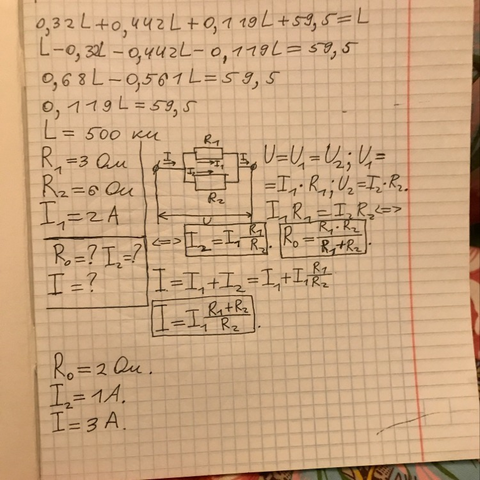 0,32L+0,442L+0,119L+59,5=L
L-0,32L-0,442L-0,119L=59,5
0,68L-0,561L=59,5
0,119L=59,5
L=500 км
R₁=3 Ом
R₂=6 Ом
I₁=2 A
R₀=? I₂=?
I=?
R₁
I
I₁
I
I₂
R₂
U
U=U₁=U₂; U₁=
=I₁·R₁; U₂=I₂·R₂.
I₁R₁=I₂R₂<=>
<=> I₂=I₁ R₁/R₂. R₀= R₁·R₂/R₁+R₂.
I=I₁+I₂=I₁+I₁ R₁/R₂
I=I₁ R₁+R₂/R₂.
R₀=2 Ом.
I₂=1A.
I=3A.